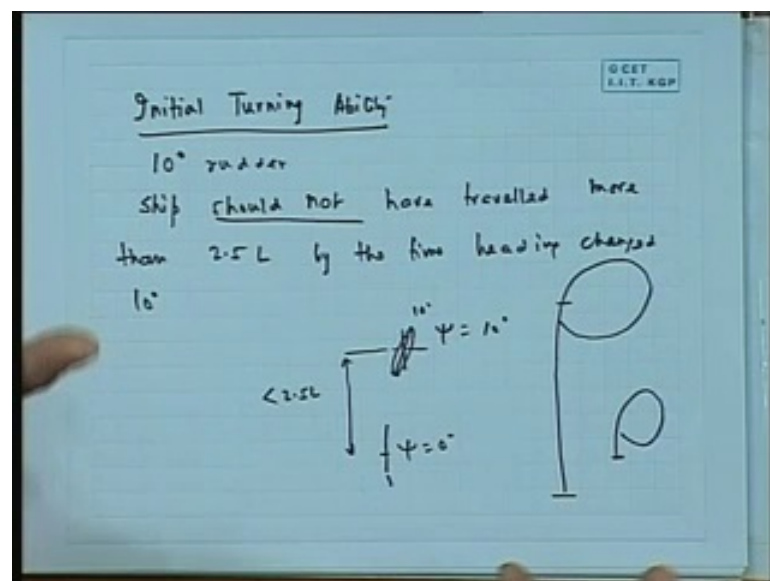 © CET
I.I.T. KGP
Initial Turning Ability
10° rudder
Ship should not have travelled more
than 2.5 L by the time heading changed
10°
10°
ψ = 10°
< 2.5L
ψ = 0°